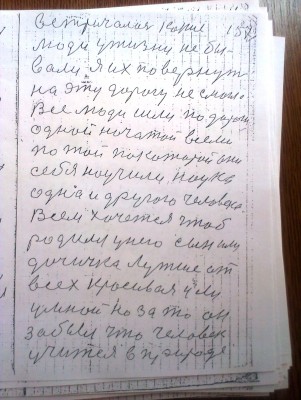 встричалася какие 158
люди у жизни не бы-
вали я их повернут
на эту дорогу не смог.
Все люди шли по дороги
одной начатой всеми
по той по которой они
себя научили, наука
одна и другого человека
Всем хочется чтоб
родили у него сын или
дочичка лутше от
всех красивая или
умной но за то он
забыли что человек
учится в природе